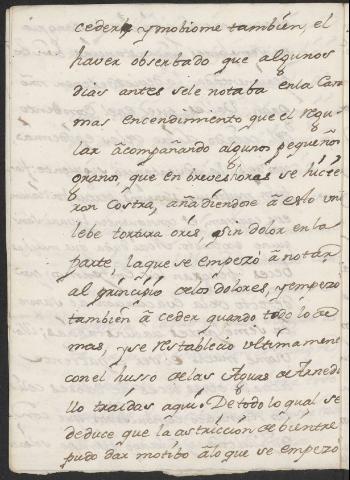 ceder, y mobiome tambien, el
haver observado que algunos
dias antes sele notaba en la Cara
mas encendimiento que el regu-
lar acompañando algunos pequeños
granos que en breves horas se hicie
ron Costra, añadiendose a esto un
lebe tortura oris, sin dolor en la
parte, la que se empezó a notar
al principio de los dolores, y empezó
tambien a ceder quando todo lo de
mas, y se restableció ultimamen
con el husso de las Aguas de Arnedi
llo traidas aqui. De todo lo qual se
deduce que la astriccion de bientre
pudo dar motibo a lo que se empezó